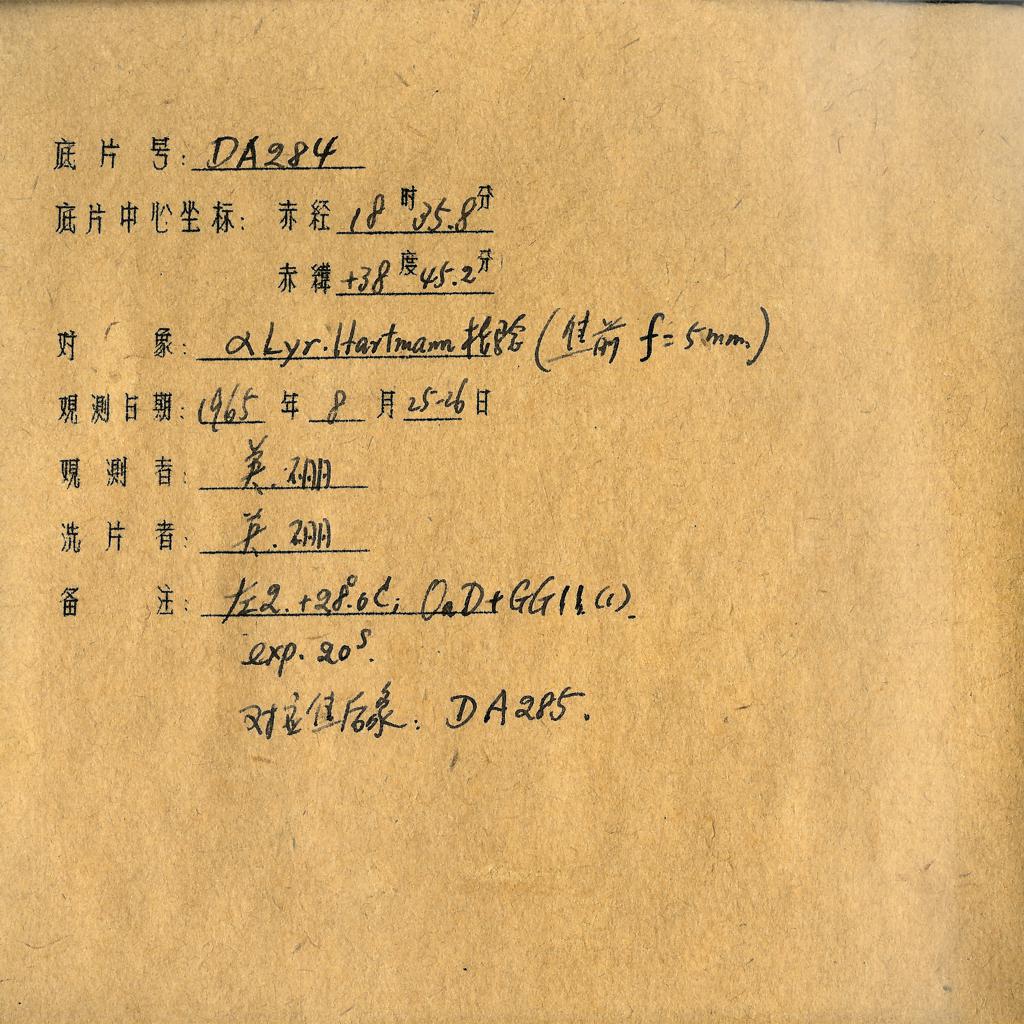 底片号: DA284
底片中心坐标: 赤经 18时35.8分
赤纬 +38度45.2分
对象: α Lyr. Hartmann 检验 (焦前 f=5mm)
观测日期: 1965年8月25-26日
观测者: 英.硼
洗片者: 英.硼
备注: 左2. +28°.0C; OaD+GG11(1).
exp. 20s.
对应焦后象: DA285.